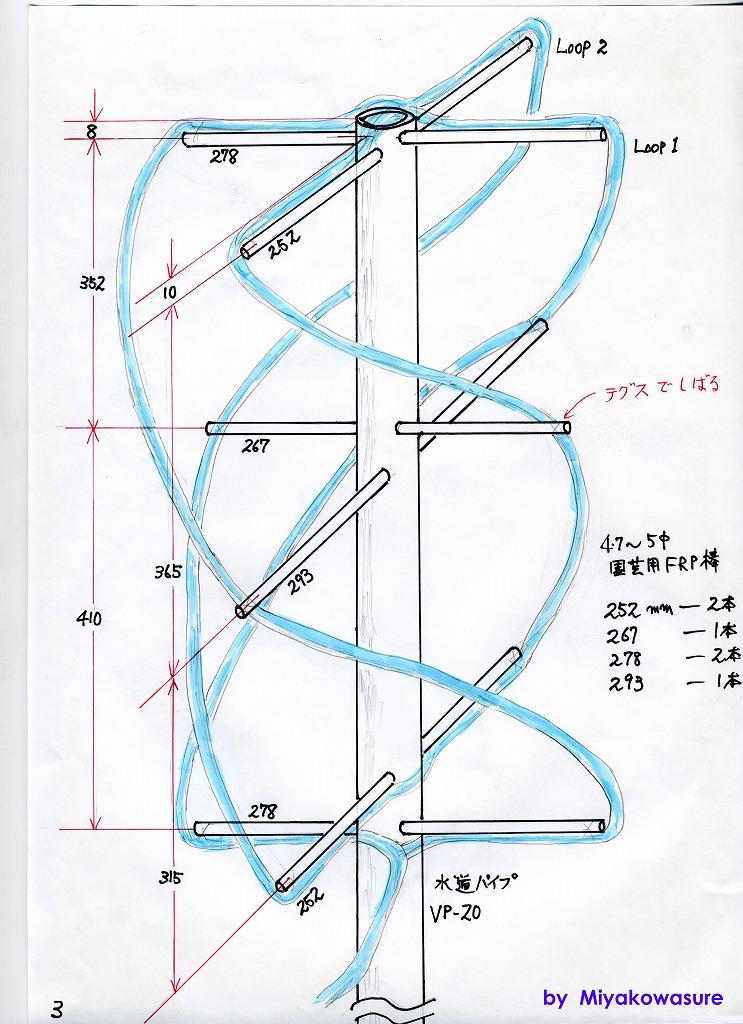 Loop 2
Loop 1
8
278
252
352
10
テグスでしばる
267
293
365
410
4.7～5φ
園芸用FRP棒
252 mm — 2本
267 — 1本
278 — 2本
293 — 1本
278
252
315
水道パイプ
VP-20
3
by Miyakowasure